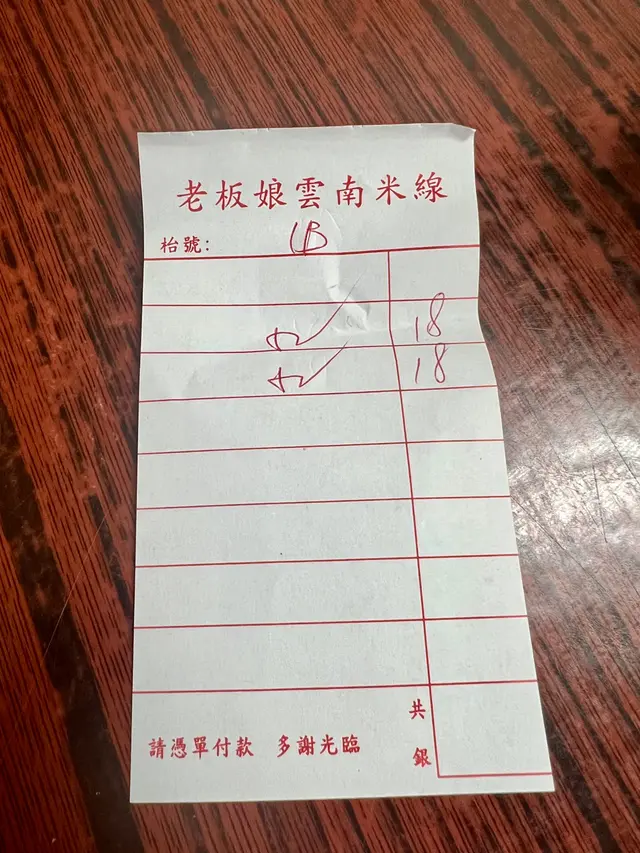 老板娘雲南米線
枱號: 1B
18
18
共
請憑單付款 多謝光臨
銀